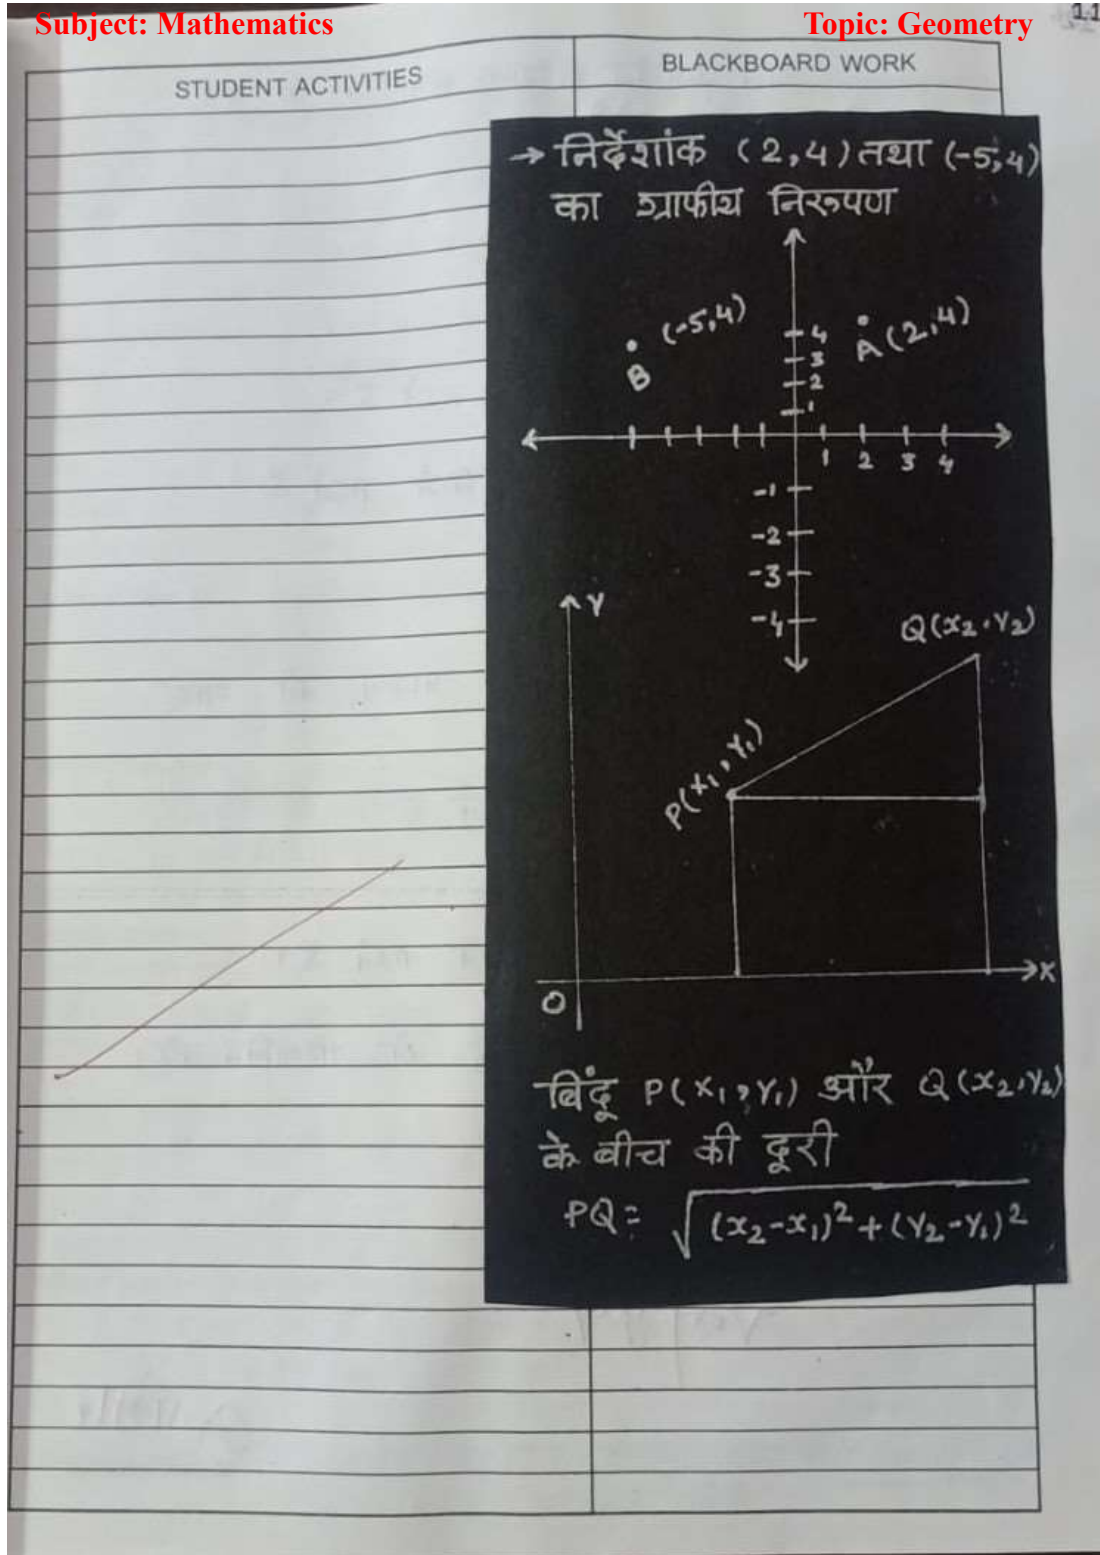 Subject: Mathematics
Topic: Geometry
11
STUDENT ACTIVITIES
BLACKBOARD WORK
→ निर्देशांक (2,4) तथा (-5,4)
का ग्राफीय निरूपण
(-5,4)
B
A (2,4)
4
3
2
1
1 2 3 4
-1
-2
-3
-4
Y
Q(x₂,Y₂)
P(x₁,Y₁)
O
X
बिंदू P(x₁,Y₁) और Q(x₂,Y₂)
के बीच की दूरी
PQ= √(x₂-x₁)²+(Y₂-Y₁)²